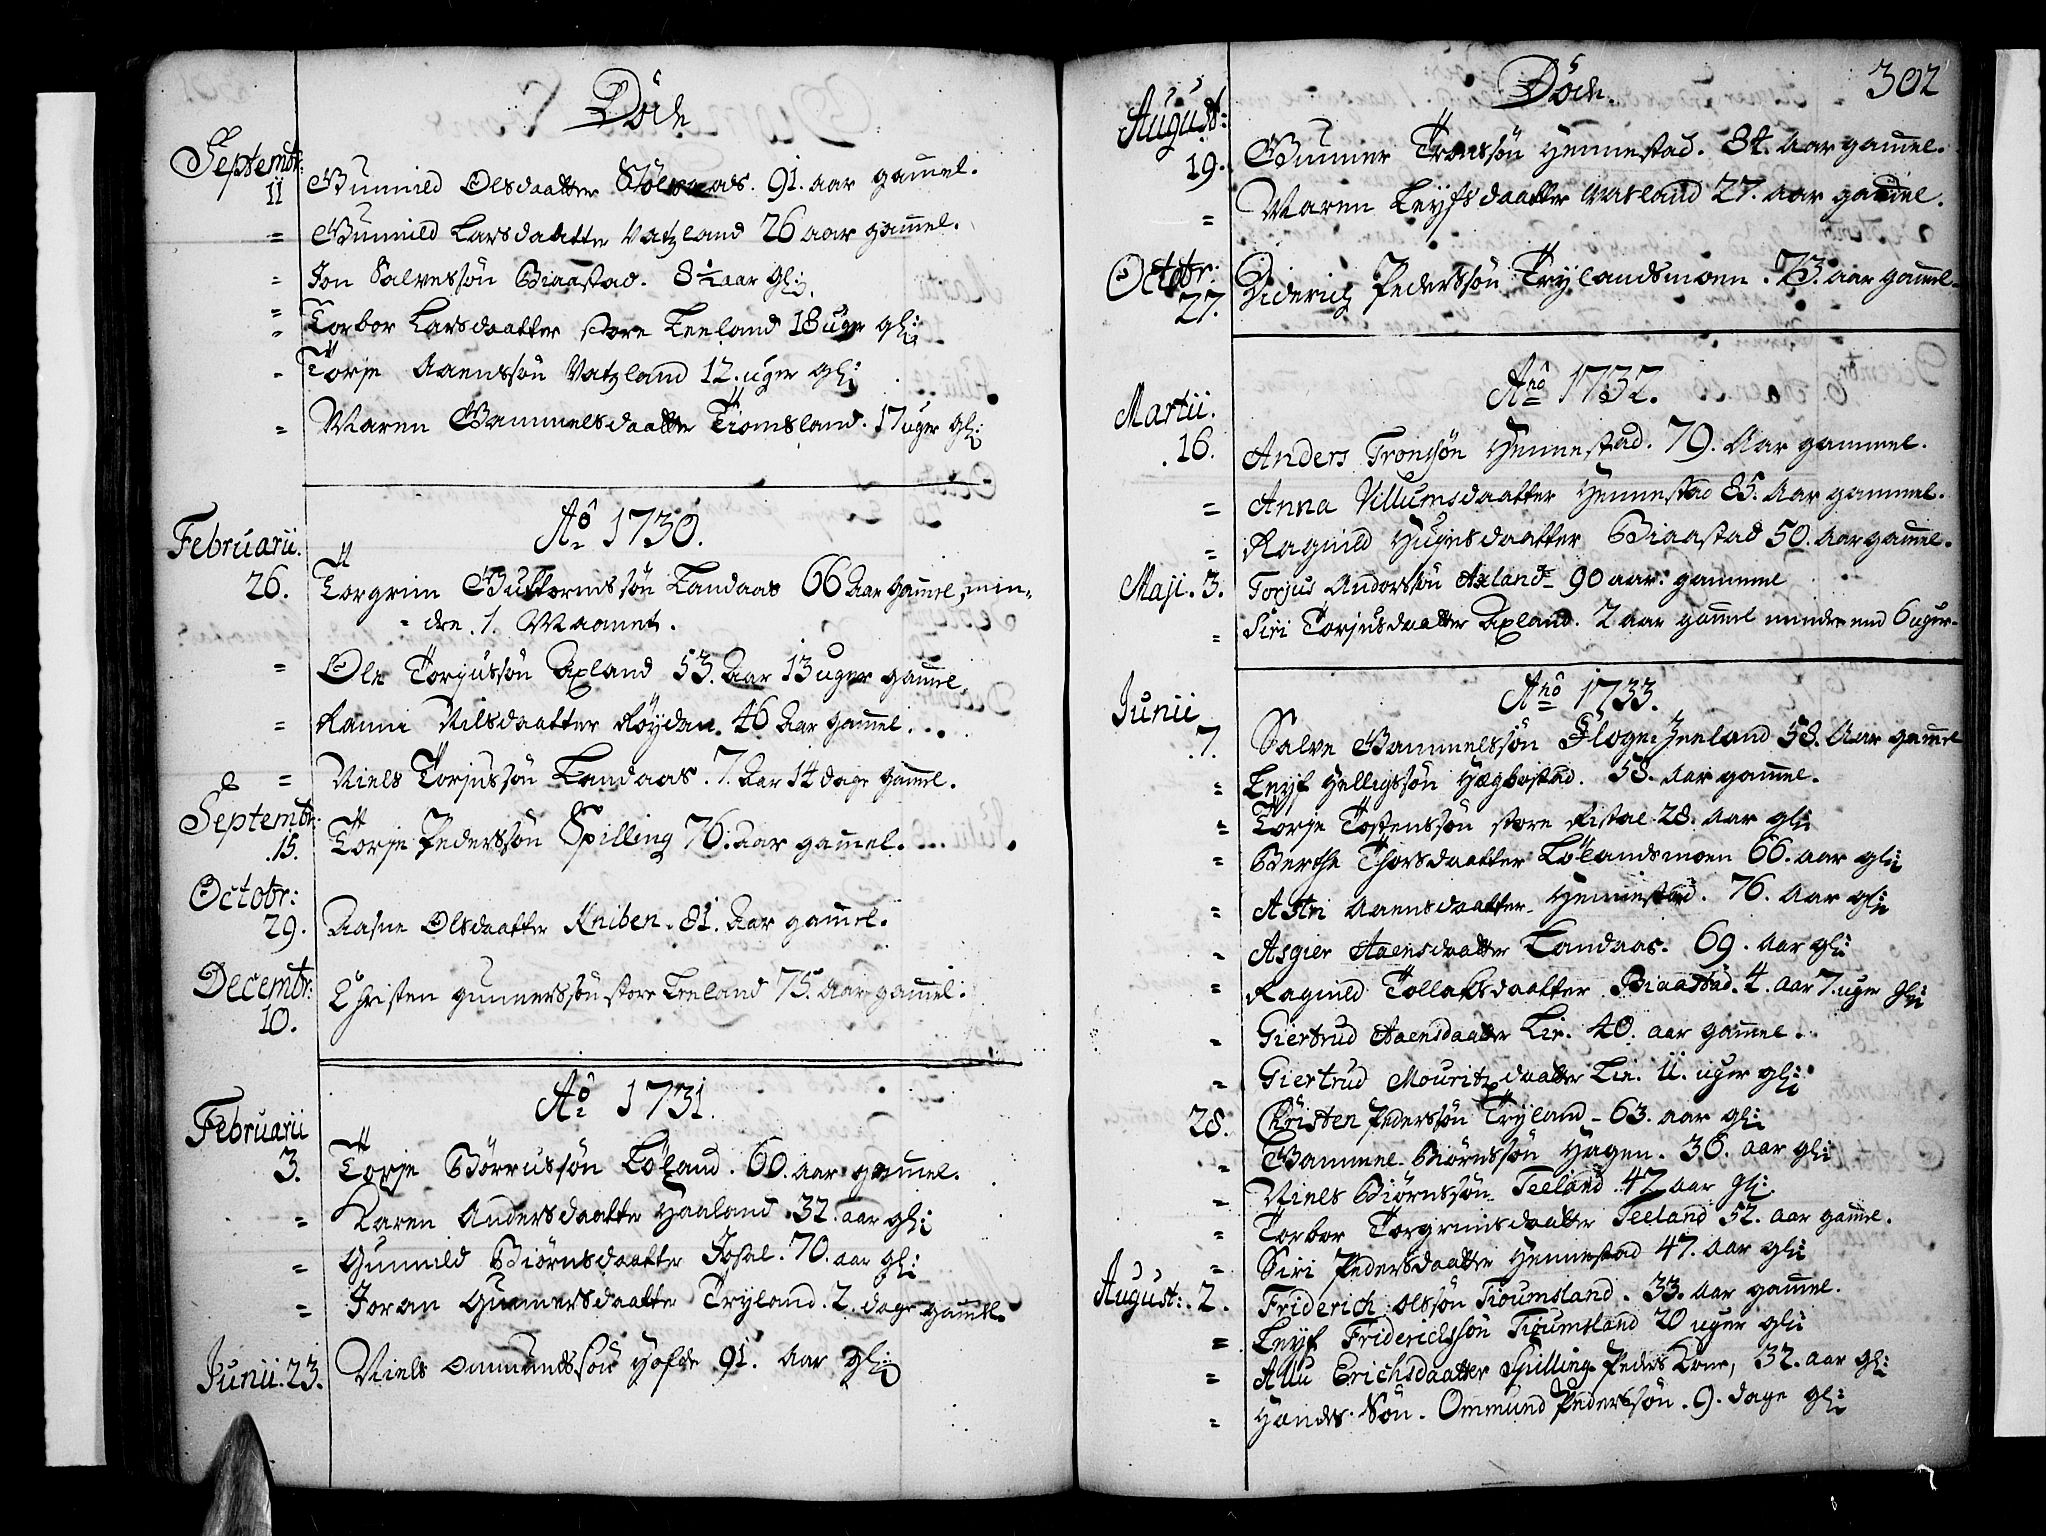 Döde
Septembr:
11 Gunnild Olsdaatter 91. aar gam̄el.
= Gunnild Larsdaatter Vatzland 26 aar gam̄el.
= Jon Salvessøn Biaastad. 8½ aar gl:
= Torbor Larsdaatter Store Leeland 18 uger gl:
- Torje Aaenssøn Vatzland 12. uger gl:
= Maren Gammelsdaatter Tiomsland. 17 uger gl:
Ao 1730.
Februarii.
26. Torgrim Guttormssøn Landaas 66 Aar gam̄el, min-
dre 1. Maanet.
= Ole Torjussøn Axland 53. Aar 13 uger gam̄el.
= Ranni Nilsdaatter Røydan. 46 Aar gam̄el.
= Niels Torjussøn Landaas. 7. Aar 14 dage gam̄el.
Septembr:
15. Torje Pederssøn Spilling 76. aar gam̄el.
Octobr:
29. Aasne Olsdaatter Kniben. 81. Aar gam̄el.
Decembr:
10. Christen Gunnerssøn store Leeland 75. Aar gam̄el.
Ao 1731.
Februarii
3. Torje Børrussøn Løland. 60. aar gam̄el.
= Karen Andersdaatter Haaland. 32. aar gl:
= Gunnild Biørnsdaatter Josal. 70. aar gl:
= Joran Gunnersdaatter Tryland. 2. dage gam̄el.
Junii. 23. Niels Ommundssøn Høfde 91. Aar gl:
Döde. 302
August:
19. Gunner Tronssøn Hennestad. 84. aar gam̄el.
= Maren Leyfsdaatter 27. aar gam̄el.
Octobr:
27. Diderich Pederssøn Trylandsmoen. 73. aar gam̄el.
Ano 1732.
Martii.
16. Anders Tronssøn Hennestad. 79. Aar gammel.
= Anna Villumsdaatter Hennestad 85. Aar gammel.
= Ragnild Hujesdaatter Biaastad 50. aar gam̄el.
Maji. 3. Torjus Andorssøn Axland 90 aar. gammel
= Siri Torjusdaatter Axland. 2 aar gam̄el mindre end 6 uger.
Ano 1733.
Junii
7. Salve Gammelssøn Floge: Jeeland 58. Aar gam̄el
= Leyf Helligssøn Hægbostad. 58. Aar gam̄el.
= Torje Tostenssøn store Ristal 28. Aar gl:
= Berthe Thorsdaatter Lølandsmoen 66. aar gl:
= Astri Aaensdaatter Hennestad. 76. Aar gl:
= Asgier Aaensdaatter Landaas. 69. Aar gl:
= Ragnild Tollaksdaatter Biaastad. 4. aar 7. uger gl:
= Giertrud Aaensdaatter Lie. 40. aar gam̄el.
= Giertrud Mouritzdaatter Lie. 11. uger gl:
28. Christen Pederssøn Tryland 63. aar gl:
= Gammel Biørnssøn Hagen. 36. aar gl:
= Niels Biørnssøn Teeland 47 aar gl:
= Torbor Torgrimsdaatter Teeland 52. aar gam̄el.
= Siri Pedersdaatter Hennestad 47. Aar gl:
August: 2. Friderich Olssøn Tioumsland. 33. Aar gam̄el.
= Leyf Friderichssøn Tioumsland 20 uger gl:
= Allu Erichsdaatter Spilling Peders Kone, 32. aar gl:
= Hendes Søn. Ommund Pederssøn. 9. dage gl: